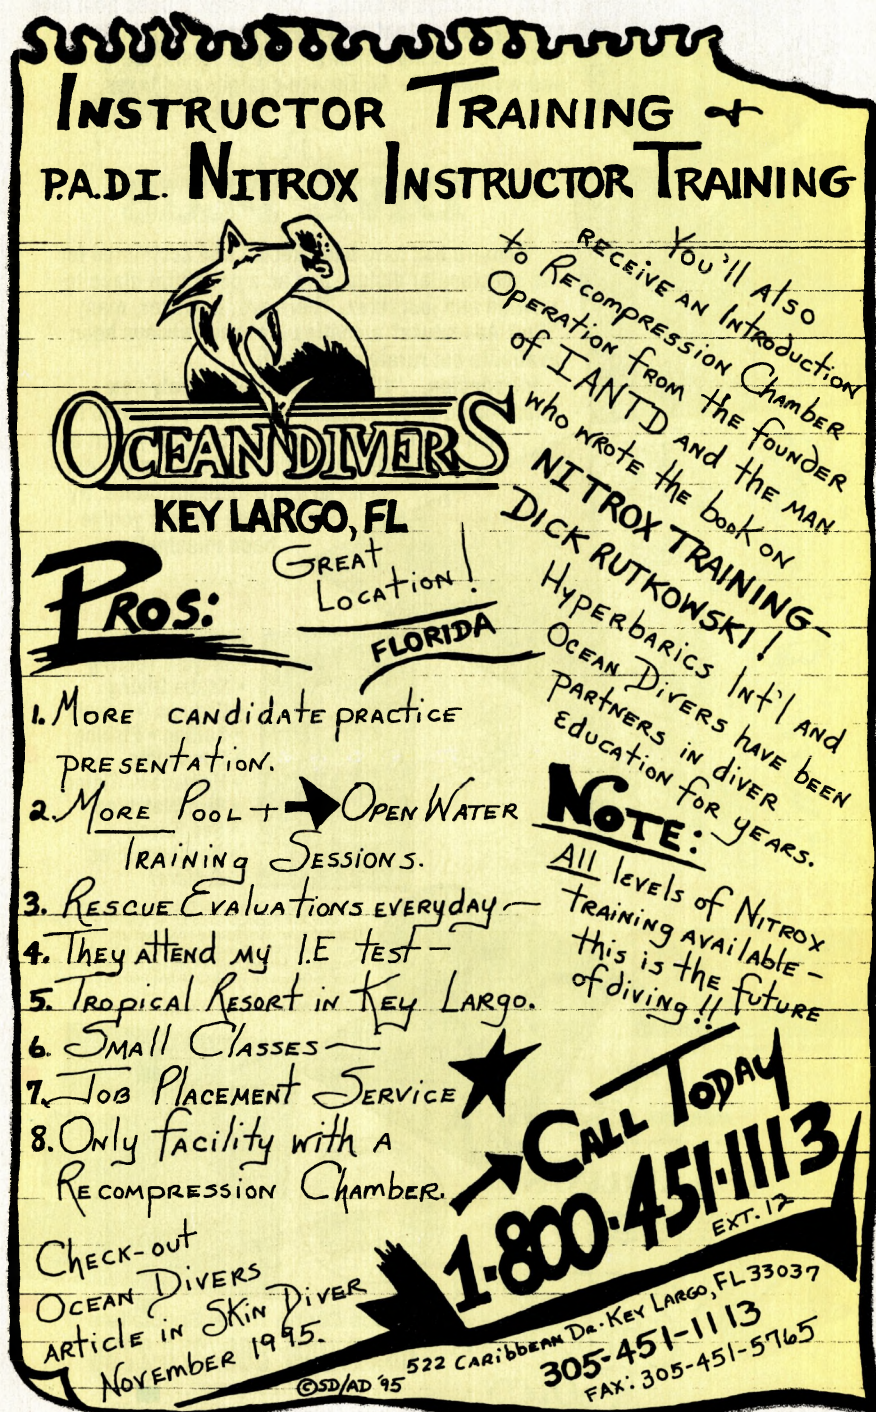 INSTRUCTOR TRAINING +
P.A.D.I. NITROX INSTRUCTOR TRAINING
OCEAN DIVERS
KEY LARGO, FL
You'll Also
RECEIVE AN INTRODUCTION
to RECOMPRESSION CHAMBER
OPERATION FROM the FOUNDER
of IANTD AND the MAN
who WROTE the book ON
NITROX TRAINING-
DICK RUTKOWSKI!
HYPERBARICS INT'l AND
OCEAN DIVERS HAVE BEEN
PARTNERS IN DIVER
EDUCATION FOR YEARS.
PROS:
GREAT
LOCATION!
FLORIDA
1. MORE CANDIDATE PRACTICE
PRESENTATION.
2. MORE POOL + OPEN WATER
TRAINING SESSIONS.
3. RESCUE EVALUATIONS EVERYDAY-
4. They ATTEND My I.E TEST-
5. TROPICAL RESORT IN KEY LARGO.
6. SMALL CLASSES-
7. JOB PLACEMENT SERVICE
8. ONLY FACILITY WITH A
RECOMPRESSION CHAMBER.
NOTE:
All levels of NITROX
TRAINING AVAILABLE-
this is the FUTURE
of diving!!
CALL TODAY
1-800-451-1113
EXT. 12
CHECK-OUT
OCEAN DIVERS
ARTICLE IN SKIN DIVER
NOVEMBER 1995.
522 CARIBBEAN DR. KEY LARGO, FL 33037
305-451-1113
FAX: 305-451-5765
©SD/AD '95